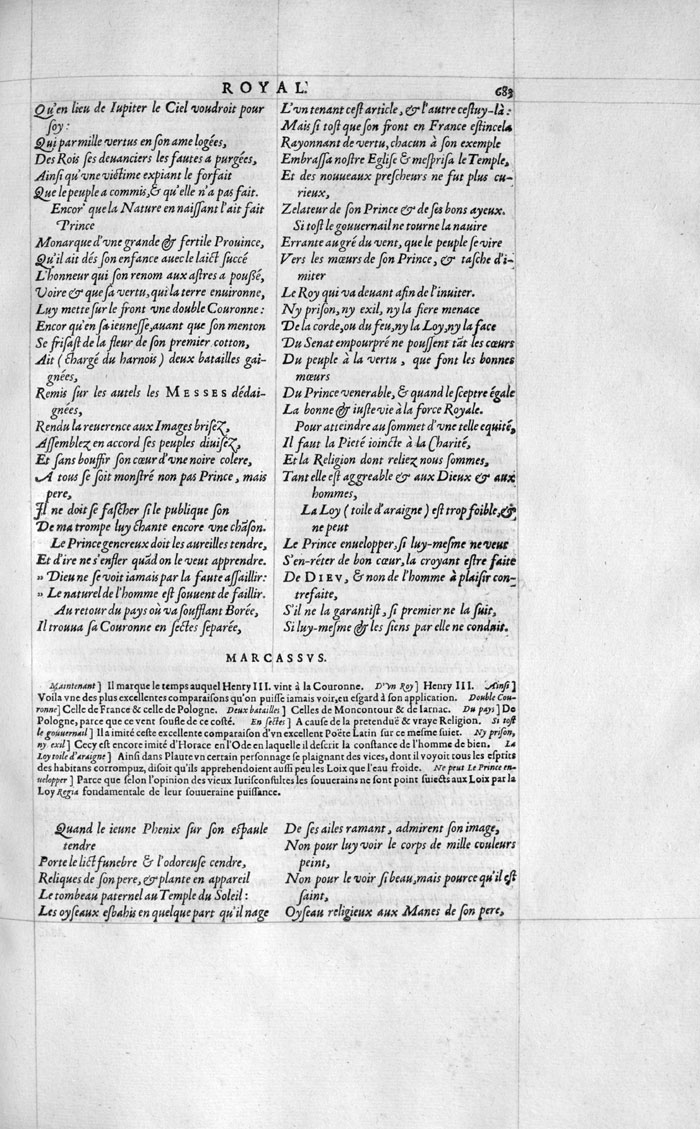 ROYAL.
683
Qu'en lieu de Iupiter le Ciel voudroit pour
soy:
Qui par mille vertus en son ame logées,
Des Rois ses deuanciers les fautes a purgées,
Ainsi qu'vne victime expiant le forfait
Que le peuple a commis, & qu'elle n'a pas fait.
Encor' que la Nature en naissant l'ait fait
Prince
Monarque d'vne grande & fertile Prouince,
Qu'il ait dés son enfance auec le laict succé
L'honneur qui son renom aux astres a poussé,
Voire & que sa vertu, qui la terre enuironne,
Luy mette sur le front vne double Couronne:
Encor qu'en sa ieunesse, auant que son menton
Se frisast de la fleur de son premier cotton,
Ait (chargé du harnois) deux batailles gai-
gnées,
Remis sur les autels les MESSES dédai-
gnées,
Rendu la reuerence aux Images brisez,
Assemblez en accord ses peuples diuisez,
Et sans bouffir son cœur d'vne noire colere,
A tous se soit monstré non pas Prince, mais
pere,
Il ne doit se fascher si le publique son
De ma trompe luy chante encore vne chãson.
Le Prince genereux doit les aureilles tendre,
Et d'ire ne s'enfler quãd on le veut apprendre.
„ Dieu ne se voit iamais par la faute assaillir:
„ Le naturel de l'homme est souuent de faillir.
Au retour du pays où va soufflant Borée,
Il trouua sa Couronne en sectes separée,
L'vn tenant cest article, & l'autre cestuy-là:
Mais si tost que son front en France estincela
Rayonnant de vertu, chacun à son exemple
Embrassa nostre Eglise & mesprisa le Temple,
Et des nouueaux prescheurs ne fut plus cu-
rieux,
Zelateur de son Prince & de ses bons ayeux.
Si tost le gouuernail ne tourne la nauire
Errante au gré du vent, que le peuple se vire
Vers les mœurs de son Prince, & tasche d'i-
miter
Le Roy qui va deuant afin de l'inuiter.
Ny prison, ny exil, ny la fiere menace
De la corde, ou du feu, ny la Loy, ny la face
Du Senat empourpré ne poussent tãt les cœurs
Du peuple à la vertu, que font les bonnes
mœurs
Du Prince venerable, & quand le sceptre égale
La bonne & iuste vie à la force Royale.
Pour atteindre au sommet d'vne telle equité,
Il faut la Pieté ioincte à la Charité,
Et la Religion dont reliez nous sommes,
Tant elle est aggreable & aux Dieux & aux
hommes,
La Loy (toile d'araigne) est trop foible, &
ne peut
Le Prince enuelopper, si luy-mesme ne veut
S'en-réter de bon cœur, la croyant estre faite
De DIEV, & non de l'homme à plaisir con-
trefaite,
S'il ne la garantist, si premier ne la suit,
Si luy-mesme & les siens par elle ne conduit.
MARCASSVS.
Maintenant] Il marque le temps auquel Henry III. vint à la Couronne. D'vn Roy] Henry III. Ainsi]
Voila vne des plus excellentes comparaisons qu'on puisse iamais voir, eu esgard à son application. Double Cou-
ronne] Celle de France & celle de Pologne. Deux batailles] Celles de Moncontour & de Iarnac. Du pays] De
Pologne, parce que ce vent soufle de ce costé. En sectes] A cause de la pretenduë & vraye Religion. Si tost
le gouuernail] Il a imité ceste excellente comparaison d'vn excellent Poëte Latin sur ce mesme suiet. Ny prison,
ny exil] Cecy est encore imité d'Horace en l'Ode en laquelle il descrit la constance de l'homme de bien. La
Loy toile d'araigne] Ainsi dans Plaute vn certain personnage se plaignant des vices, dont il voyoit tous les esprits
des habitans corrompuz, disoit qu'ils apprehendoient aussi peu les Loix que l'eau froide. Ne peut Le Prince en-
uelopper] Parce que selon l'opinion des vieux Iurisconsultes les souuerains ne sont point suiects aux Loix par la
Loy Regia fondamentale de leur souueraine puissance.
Quand le ieune Phenix sur son espaule
tendre
Porte le lict funebre & l'odoreuse cendre,
Reliques de son pere, & plante en appareil
Le tombeau paternel au Temple du Soleil:
Les oyseaux esbahis en quelque part qu'il nage
De ses ailes ramant, admirent son image,
Non pour luy voir le corps de mille couleurs
peint,
Non pour le voir si beau, mais pource qu'il est
saint,
Oyseau religieux aux Manes de son pere,